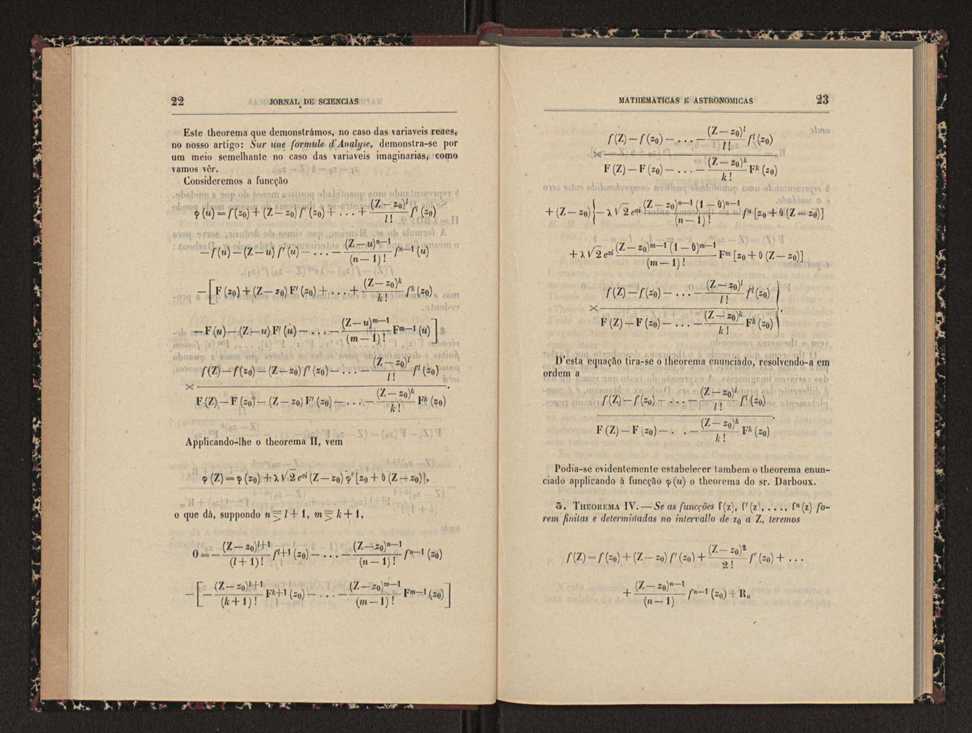 22 JORNAL DE SCIENCIAS
Este theorema que demonstrámos, no caso das variaveis reaes,
no nosso artigo: Sur une formule d'Analyse, demonstra-se por
um meio semelhante no caso das variaveis imaginarias, como
vamos vêr.
Consideremos a funcção
φ(u) = f(z₀) + (Z — z₀) f′(z₀) + . . . + (Z — z₀)^l / l! f^l (z₀)
— f(u) — (Z — u) f′(u) — . . . — (Z — u)^{n—1} / (n — 1)! f^{n—1} (u)
— [ F (z₀) + (Z — z₀) F′ (z₀) + . . . + (Z — z₀)^k / k! f^k (z₀)
— F (u) — (Z — u) F′ (u) — . . . — (Z — u)^{m—1} / (m — 1)! F^{m—1} (u) ]
× f(Z) — f(z₀) — (Z — z₀) f′(z₀) — . . . — (Z — z₀)^l / l! f^l (z₀)
F (Z) — F (z₀) — (Z — z₀) F′ (z₀) — . . . — (Z — z₀)^k / k! F^k (z₀) .
Applicando-lhe o theorema II, vem
φ (Z) = φ (z₀) + λ √2 e^{αi} (Z — z₀) φ′ [z₀ + θ (Z — z₀)],
o que dá, suppondo n ≧ l + 1, m ≧ k + 1,
0 = — (Z — z₀)^{l+1} / (l + 1)! f^{l+1} (z₀) — . . . — (Z — z₀)^{n—1} / (n — 1)! f^{n—1} (z₀)
— [ — (Z — z₀)^{k+1} / (k + 1)! F^{k+1} (z₀) — . . . — (Z — z₀)^{m—1} / (m — 1)! F^{m—1} (z₀) ]
MATHEMATICAS E ASTRONOMICAS 23
× f (Z) — f (z₀) — . . . — (Z — z₀)^l / l! f^l (z₀)
F (Z) — F (z₀) — . . . — (Z — z₀)^k / k! F^k (z₀)
+ (Z — z₀) { — λ √2 e^{αi} (Z — z₀)^{n—1} (1 — θ)^{n—1} / (n — 1)! f^n [z₀ + θ (Z — z₀)]
+ λ √2 e^{αi} (Z — z₀)^{m—1} (1 — θ)^{m—1} / (m — 1)! F^m [z₀ + θ (Z — z₀)]
× f (Z) — f (z₀) — . . . — (Z — z₀)^l / l! f^l (z₀)
F (Z) — F (z₀) — . . . — (Z — z₀)^k / k! F^k (z₀) } .
D'esta equação tira-se o theorema enunciado, resolvendo-a em
ordem a
f (Z) — f (z₀) — . . . — (Z — z₀)^l / l! f^l (z₀)
F (Z) — F (z₀) — . . — (Z — z₀)^k / k! F^k (z₀) .
Podia-se evidentemente estabelecer tambem o theorema enun-
ciado applicando á funcção φ (u) o theorema do sr. Darboux.
5. THEOREMA IV. — Se as funcções f (z), f′ (z), . . . , f^n (z) fo-
rem finitas e determinadas no intervallo de z₀ a Z, teremos
f (Z) = f (z₀) + (Z — z₀) f′ (z₀) + (Z — z₀)² / 2! f″ (z₀) + . . .
+ (Z — z₀)^{n—1} / (n — 1) f^{n—1} (z₀) + R_n